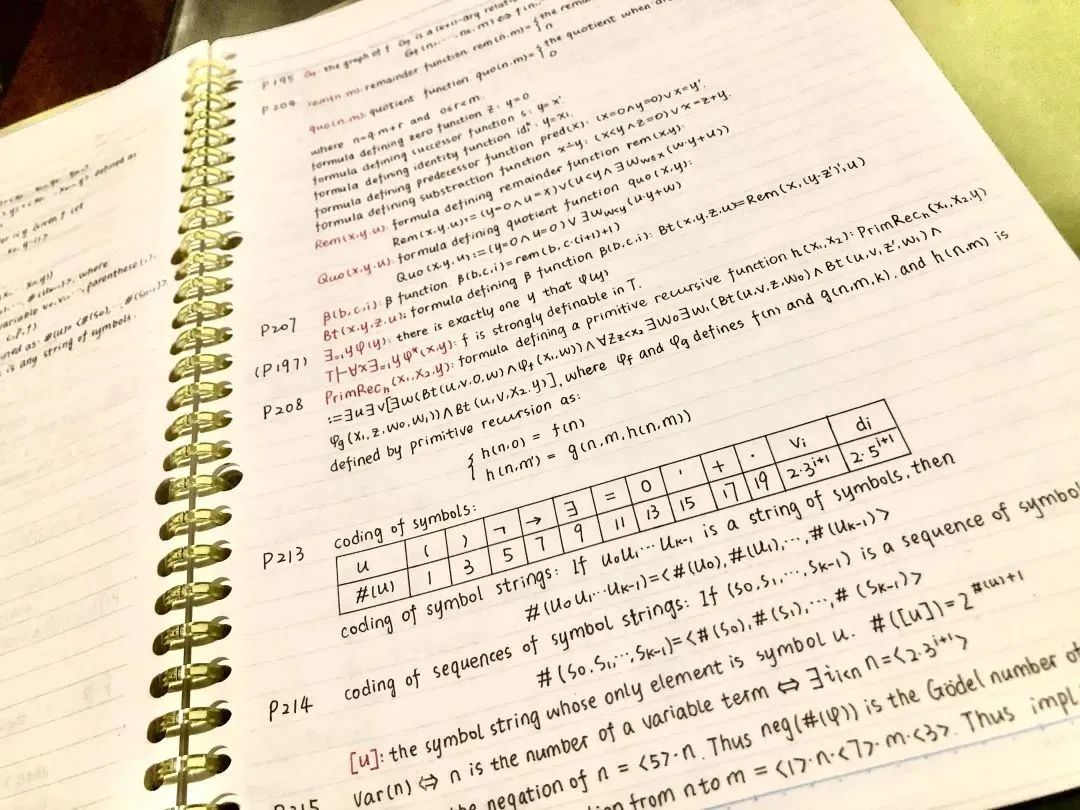 P195 the graph of f is a
P204 rem(n,m): remainder function rem(n,m)={the
n
quo(n,m): quotient function quo(n,m)={the quotient when
0
where n=q·m+r and o≤r≤m.
formula defining zero function z: y=0
formula defining successor function s: y=x'
formula defining identity function id: y=xi
formula defining predecessor function pred(x): (x=0∧y=0)∨x=y'.
formula defining substraction function x∸y: (x<y∧z=0)∨x=z+y.
Rem(x,y,u): formula defining remainder function rem(x,y):
Rem(x,y,u):=(y=0∧u=x)∨(u<y∧∃w w≤x(w·y+u))
Quo(x,y,u): formula defining quotient function quo(x,y):
Quo(x,y,u):=(y=0∧u=0)∨∃w w<y(u·y+w)
P207 β(b,c,i): β function. β(b,c,i)=rem(b,c·(i+1)+1)
Bt(x,y,z,u): formula defining β function β(b,c,i): Bt(x,y,z,u)=Rem(x,(y·z')',u)
(P197) ∃=1yφ(y): there is exactly one y that φ(y)
T⊢∀x∃=1yφ*(x,y): f is strongly definable in T.
P208 PrimRech(x1,x2,y): formula defining a primitive recursive function h(x1,x2): PrimRech(x1,x2,y)
:=∃u∃v[∃w(Bt(u,v,0,w)∧φf(x1,w))∧∀z z<x2∃w0∃w1(Bt(u,v,z,w0)∧Bt(u,v,z',w1)∧
φg(x1,z,w0,w1))∧Bt(u,v,x2,y)], where φf and φg defines f(n) and g(n,m,k), and h(n,m) is
defined by primitive recursion as:
{h(n,0) = f(n)
h(n,m') = g(n,m,h(n,m))
P213 coding of symbols:
u ( ) ¬ → ∃ = 0 ' + · vi di
#(u) 1 3 5 7 9 11 13 15 17 19 2·3^i+1 2·5^i+1
coding of symbol strings: If u0u1···uk-1 is a string of symbols, then
#(u0u1···uk-1)=<#(u0),#(u1),···,#(uk-1)>
P214 coding of sequences of symbol strings: If (s0,s1,···,sk-1) is a sequence of symbol
#(s0,s1,···,sk-1)=<#(s0),#(s1),···,#(sk-1)>
[u]: the symbol string whose only element is symbol u. #([u])=2^#(u)+1
P215 var(n)⇔n is the number of a variable term⇔∃i i<n n=<2·3^i+1>
negation of n = <5>·n. Thus neg(#(φ)) is the Gödel number of
from n to m = <1>·n·<7>·m·<3>. Thus impl
defined as
given f ist
where
variable parenthese(,),
ned as: #(u)= <#(s0),···,#(sn-1)>.
is any string of symbols.